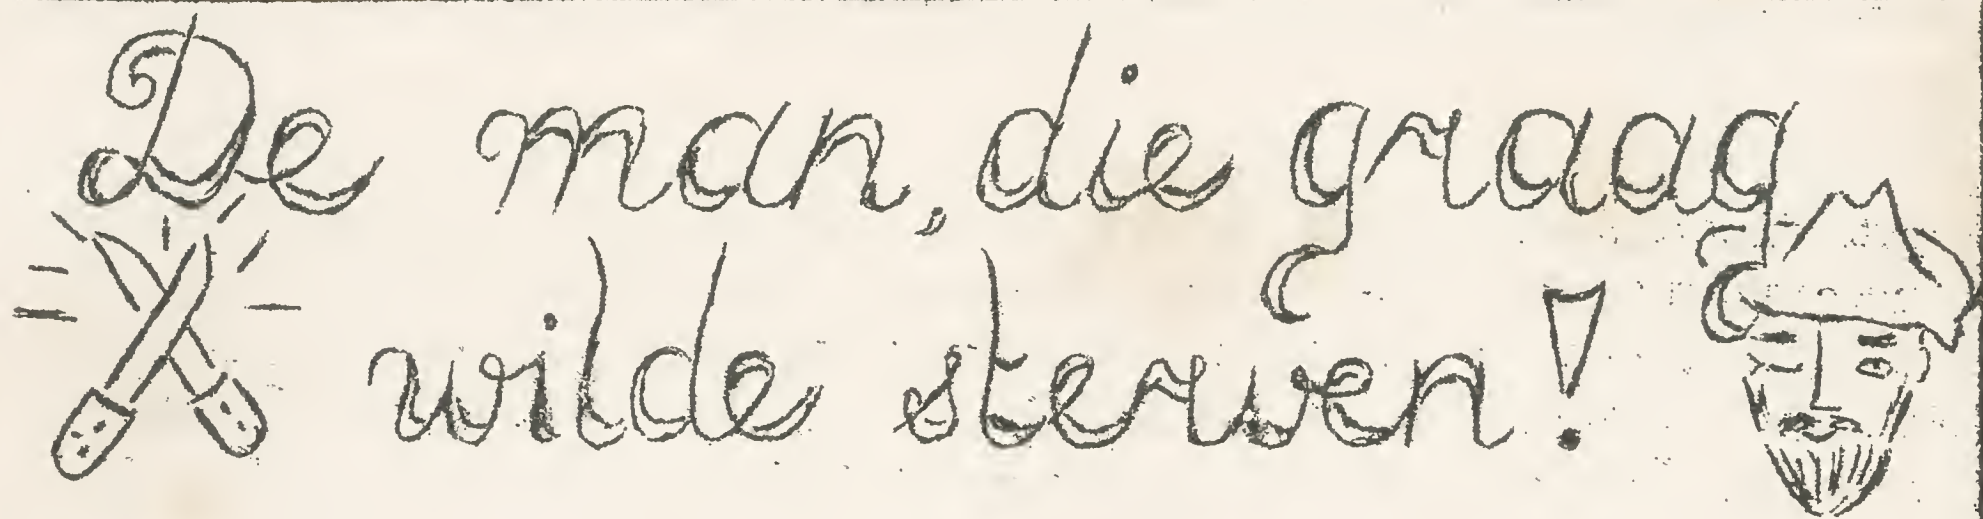 De man, die graag
wilde sterven!